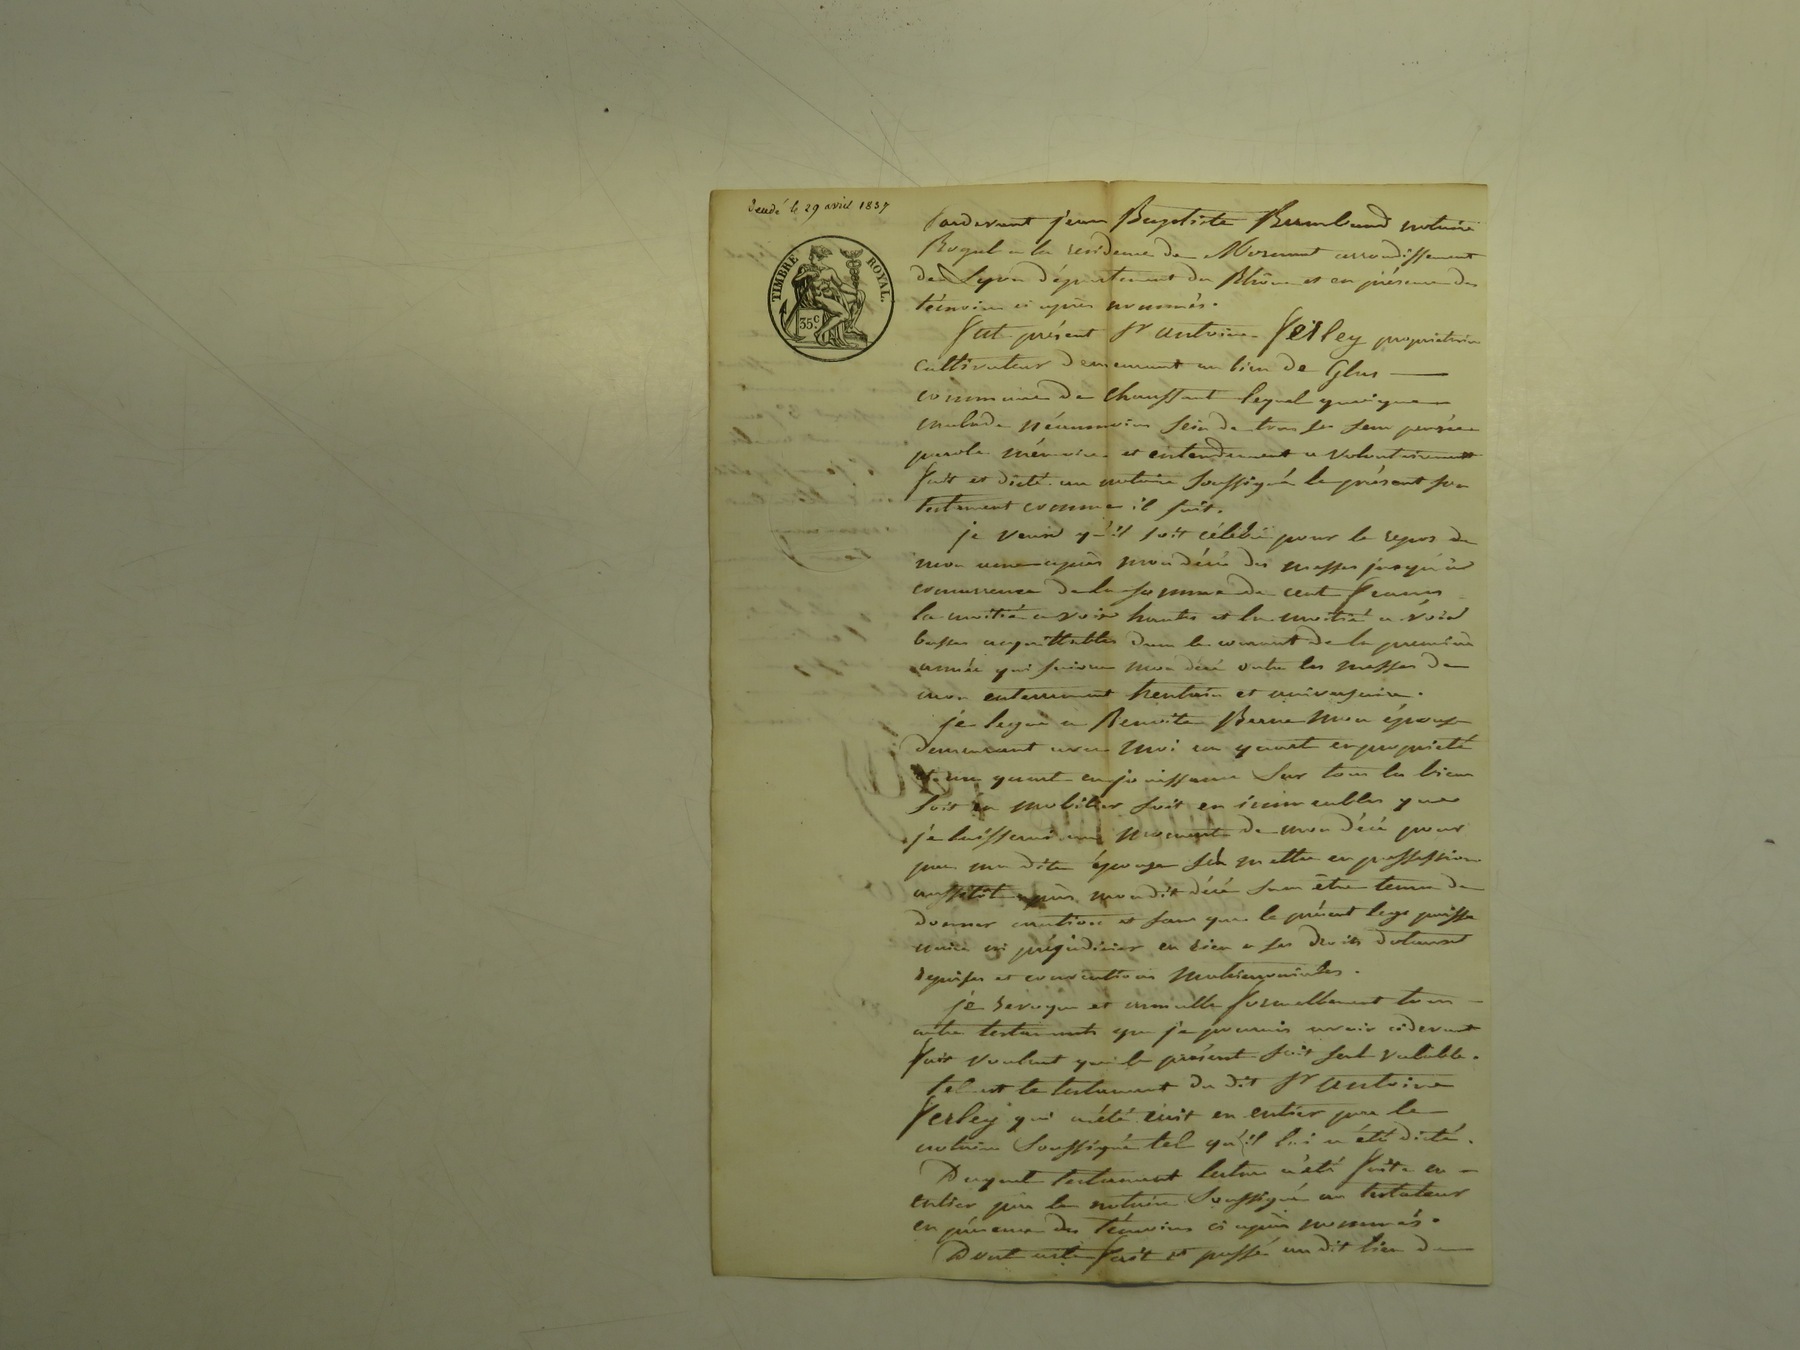 décédé le 29 avril 1837
TIMBRE ROYAL.
35 c
Pardevant jean Baptiste notaire
Royal a la residence de Mornant arrondissement
de Lyon département du Rhône et en présence des
témoins ci après nommés.
fut présent Sr antoine ferley propriétaire
cultivateur demeurant au lieu de Glas
commune de Chaussant lequel quoique
malade néanmoins sein de tous ses sens pensée
parole mémoire et entendement a volontairement
fait et dicté au notaire soussigné le présent son
testament comme il suit.
je veux qu'il soit célébré pour le repos de
mon ame après mon décé des messes jusqu'à
concurrence de la somme de cent francs
la moitié a voix hautes et la moitié a voix
basses acquittables dans le courant de la premiere
année qui suivra mon décé outre les messes de
mon enterrement trentain et aniversaire.
je legue a Benoite Berne mon épouse
demeurant avec moi un quart en propriété
et un quart en jouissance sur tous les biens
soit en mobilier soit en immeubles que
je laisserai au moment de mon décé pour
par ma dite épouse s'en mettre en possession
aussitôt après mon dit décé sans être tenue de
donner caution et sans que le présent legs puisse
nuire ni préjudicier en rien a ses droits dotaux
reprises et conventions matrimoniales.
je revoque et annulle formellement tous
autre testaments que je pourrais avoir cidevant
fait voulant que le présent soit seul valable.
tel est le testament du dit Sr antoine
ferley qui a été écrit en entier par le
notaire soussigné tel qu'il lui a été dicté.
Duquel testament lecture a été faite en
entier par le notaire soussigné au testateur
en présence des témoins ci après nommés.
Dont acte fait et passé au dit lieu de